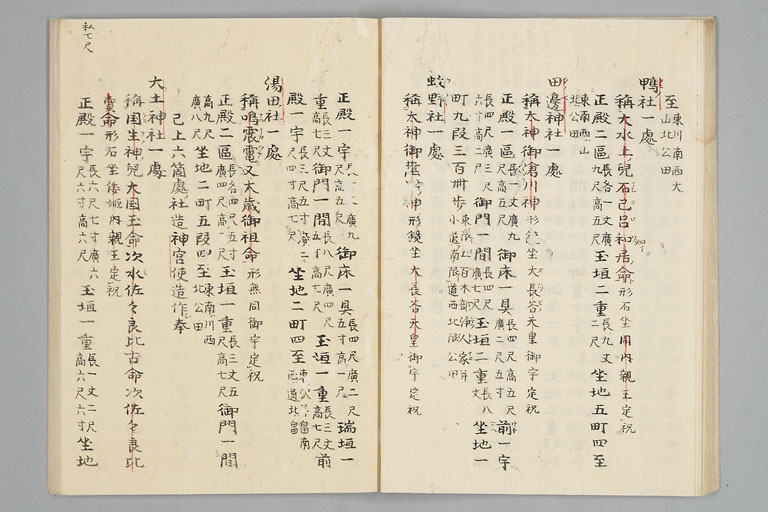 至東川南西大
山北公田
鴨社一處
稱大水上兒石己呂和居命形石坐
正殿二區長各一丈廣
九尺高
玉垣二重長九丈
二尺
坐地五町四至
東南西山
北公田
田邊神社一處
稱大神御滄川神形
坐大長谷天皇御宇定祝
正殿一區長一丈廣九
尺高
御床一具長四尺高五尺
廣二尺五寸
前一宇
長四尺廣三尺
六寸高二尺
御門一間長四尺
廣七尺
玉垣二重長八
丈
坐地一
町九段三百卅步
小道南限道西北限公田
蚊野社一處
稱大神御蔭神形鏡坐大長谷天皇御宇定祝
正殿一宇
廣九
尺高五尺
御床一具長四尺廣二尺
五寸高一尺
瑞垣一
重長三丈
高七尺
御門一間長八尺廣四尺
五寸高七尺
玉垣一重長三丈
高七尺
前
殿一宇長三尺五寸廣二
尺四寸高七尺
坐地二町四至
西道北畠
湯田社一處
稱鳴震電又大歲御祖命形無同御宇定祝
正殿二區長各四尺五寸
廣四尺高二尺
玉垣一重長三丈五
尺高七尺
御門一間
高九尺
廣八尺
坐地二町五段四至東南川西
北公田
己上六箇處社造神宮使造作奉
大土神社一處
稱國生神兒大国玉命次水佐々良比古命次佐々良比
賣命形石坐倭姬內親王定祝
正殿一宇長六尺七寸廣六
尺六寸高六尺
玉垣一重長一丈二尺
高六尺六寸
坐地